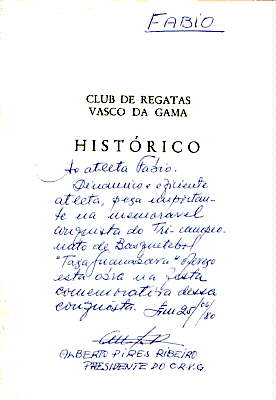 FABIO
CLUB DE REGATAS
VASCO DA GAMA
HISTÓRICO
Ao atleta Fabio.
Dinamico e eficiente
atleta, peça importan-
te na memoravel
conquista do Tri-campeo-
nato de Basquetebol
"Taça Guanabara" ofereço
esta obra na festa
comemorativa dessa
conquista. Em 25/04/80
ALBERTO PIRES RIBEIRO
PRESIDENTE DO C.R.V.G.